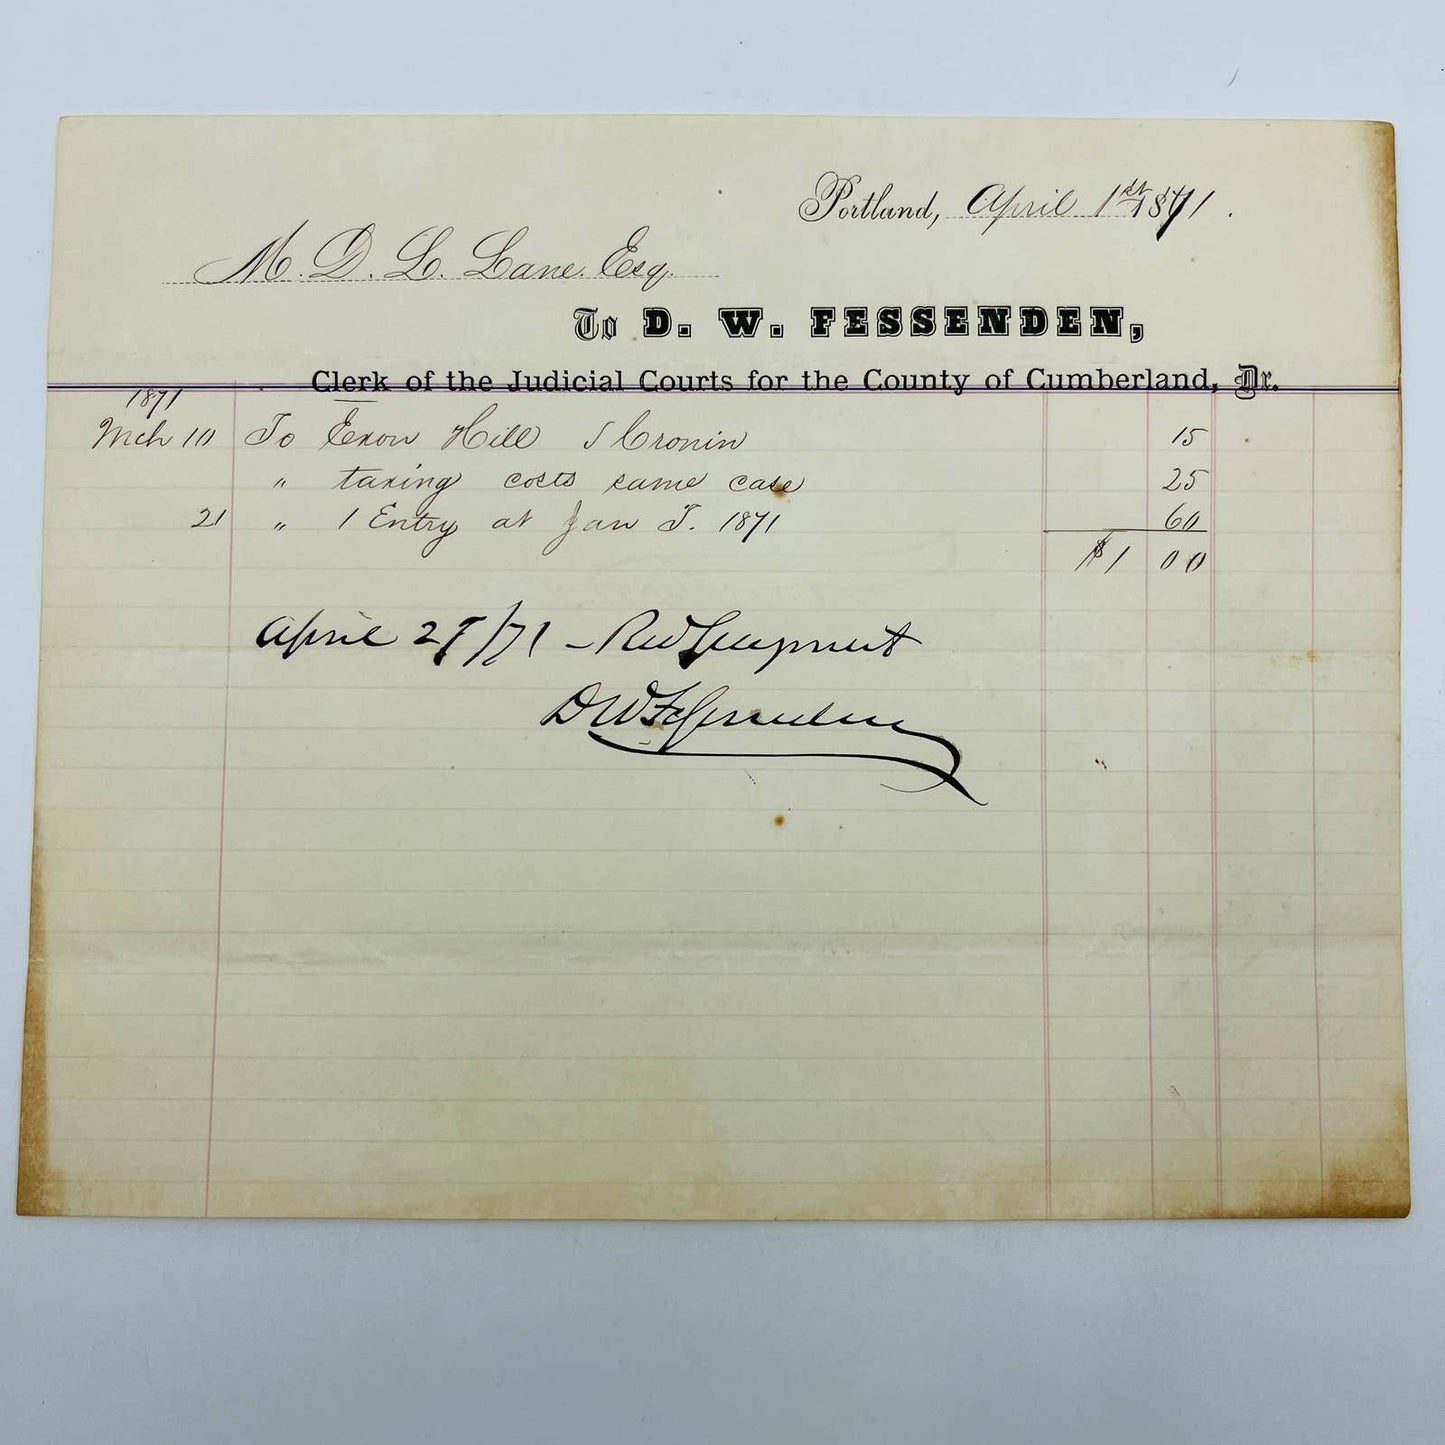 Portland, April 1st 1871.
M. D. L. Lane. Esq.
To D. W. FESSENDEN,
Clerk of the Judicial Courts for the County of Cumberland, Dr.
1871
Mch 10 To Exon Hill Cronin 15
" taxing costs same case 25
21 " 1 Entry at Jan T. 1871 60
$1 00
April 27/71 - Recd payment
DWFessenden